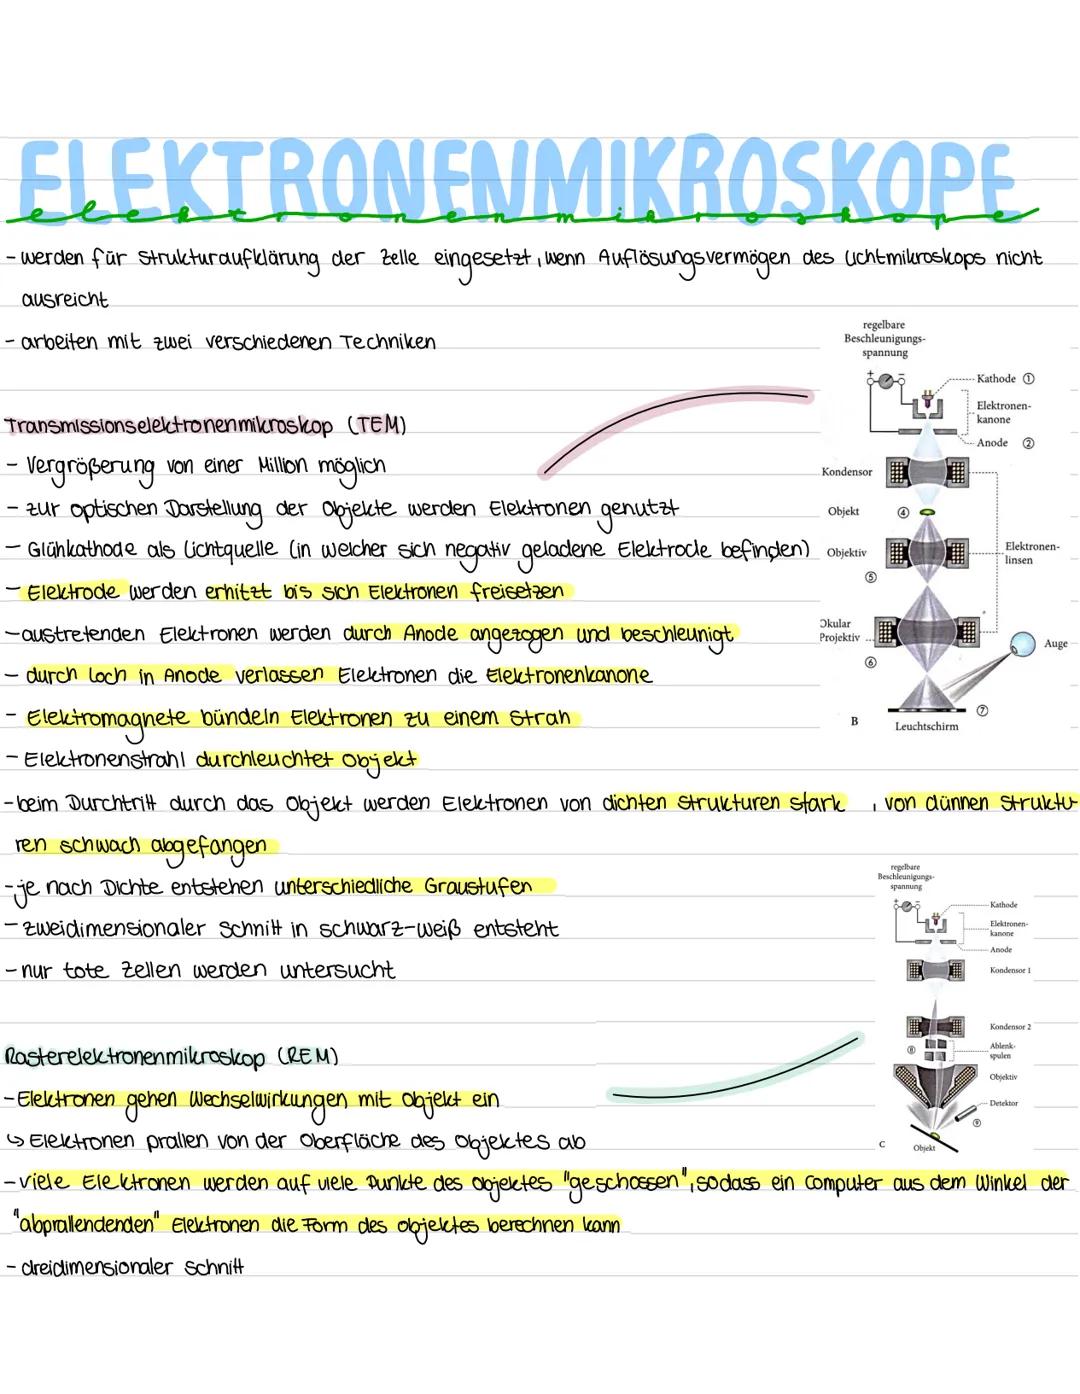 ELEKTRONENMIKROSKOPE
elektronenmikroskope
- werden für Strukturaufklärung der Zelle eingesetzt, wenn Auflösungsvermögen des Lichtmikroskops nicht
ausreicht
- arbeiten mit zwei verschiedenen Techniken
regelbare
Beschleunigungs-
spannung
+ −
Kathode ①
Elektronen-
kanone
Anode ②
Kondensor
Objekt ④
Objektiv
⑤
Elektronen-
linsen
Okular
Projektiv
⑥
Auge
⑦
B
Leuchtschirm
Transmissionselektronenmikroskop (TEM)
- Vergrößerung von einer Million möglich
- zur optischen Darstellung der Objekte werden Elektronen genutzt
- Glühkathode als Lichtquelle (in welcher sich negativ geladene Elektrode befinden)
- Elektrode werden erhitzt bis sich Elektronen freisetzen
- austretenden Elektronen werden durch Anode angezogen und beschleunigt
- durch Loch in Anode verlassen Elektronen die Elektronenkanone
- Elektromagnete bündeln Elektronen zu einem Strah
- Elektronenstrahl durchleuchtet Objekt
- beim Durchtritt durch das Objekt werden Elektronen von dichten Strukturen stark , von dünnen Struktu
ren schwach abgefangen
- je nach Dichte entstehen unterschiedliche Graustufen
- zweidimensionaler Schnitt in schwarz-weiß entsteht
- nur tote Zellen werden untersucht
regelbare
Beschleunigungs-
spannung
+ −
Kathode
Elektronen-
kanone
Anode
Kondensor 1
Kondensor 2
⑧
Ablenk-
spulen
Objektiv
Detektor
⑨
C
Objekt
Rasterelektronenmikroskop (REM)
- Elektronen gehen Wechselwirkungen mit Objekt ein
↳ Elektronen prallen von der Oberfläche des Objektes ab
- viele Elektronen werden auf viele Punkte des Objektes "geschossen", sodass ein Computer aus dem Winkel der
"abprallendenden" Elektronen die Form des Objektes berechnen kann
- dreidimensionaler Schnitt